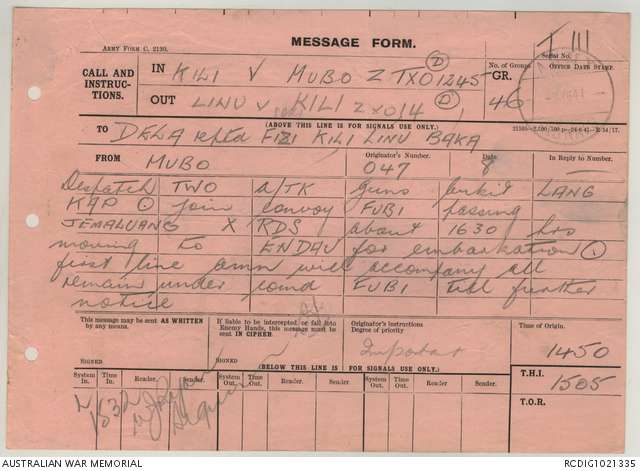 ARMY FORM C. 2130.
MESSAGE FORM.
I 111
Serial No.
CALL AND INSTRUC-TIONS.
IN KILI V MUBO Z TXO1245 (D)
No. of Groups GR. 46
OFFICE DATE STAMP.
OUT LINU v KILI Z XO14 (D)
(ABOVE THIS LINE IS FOR SIGNALS USE ONLY.)
TO DELA rptd FIZI KILI LINU BAKA
FROM MUBO
Originator's Number. 047
Date 8
In Reply to Number. —
Despatch TWO A/TK guns LANG
KAP O join convoy FUBI passing
JEMALUANG X RDS about 1630 hrs
moving to ENDAU for embarkation O
first line amn will accompany all
remain under comd FUBI till further
notice
This message may be sent AS WRITTEN by any means.
If liable to be intercepted or fall into Enemy Hands, this message must be sent IN CIPHER.
Originator's Instructions Degree of priority
Time of Origin.
Important
1450
SIGNED
SIGNED
(BELOW THIS LINE IS FOR SIGNALS USE ONLY.)
T.H.I.
1505
System In. Time In. Reader. Sender. System Out. Time Out. Reader. Sender. System Out. Time Out. Reader. Sender.
T.O.R.
AUSTRALIAN WAR MEMORIAL
RCDIG1021335